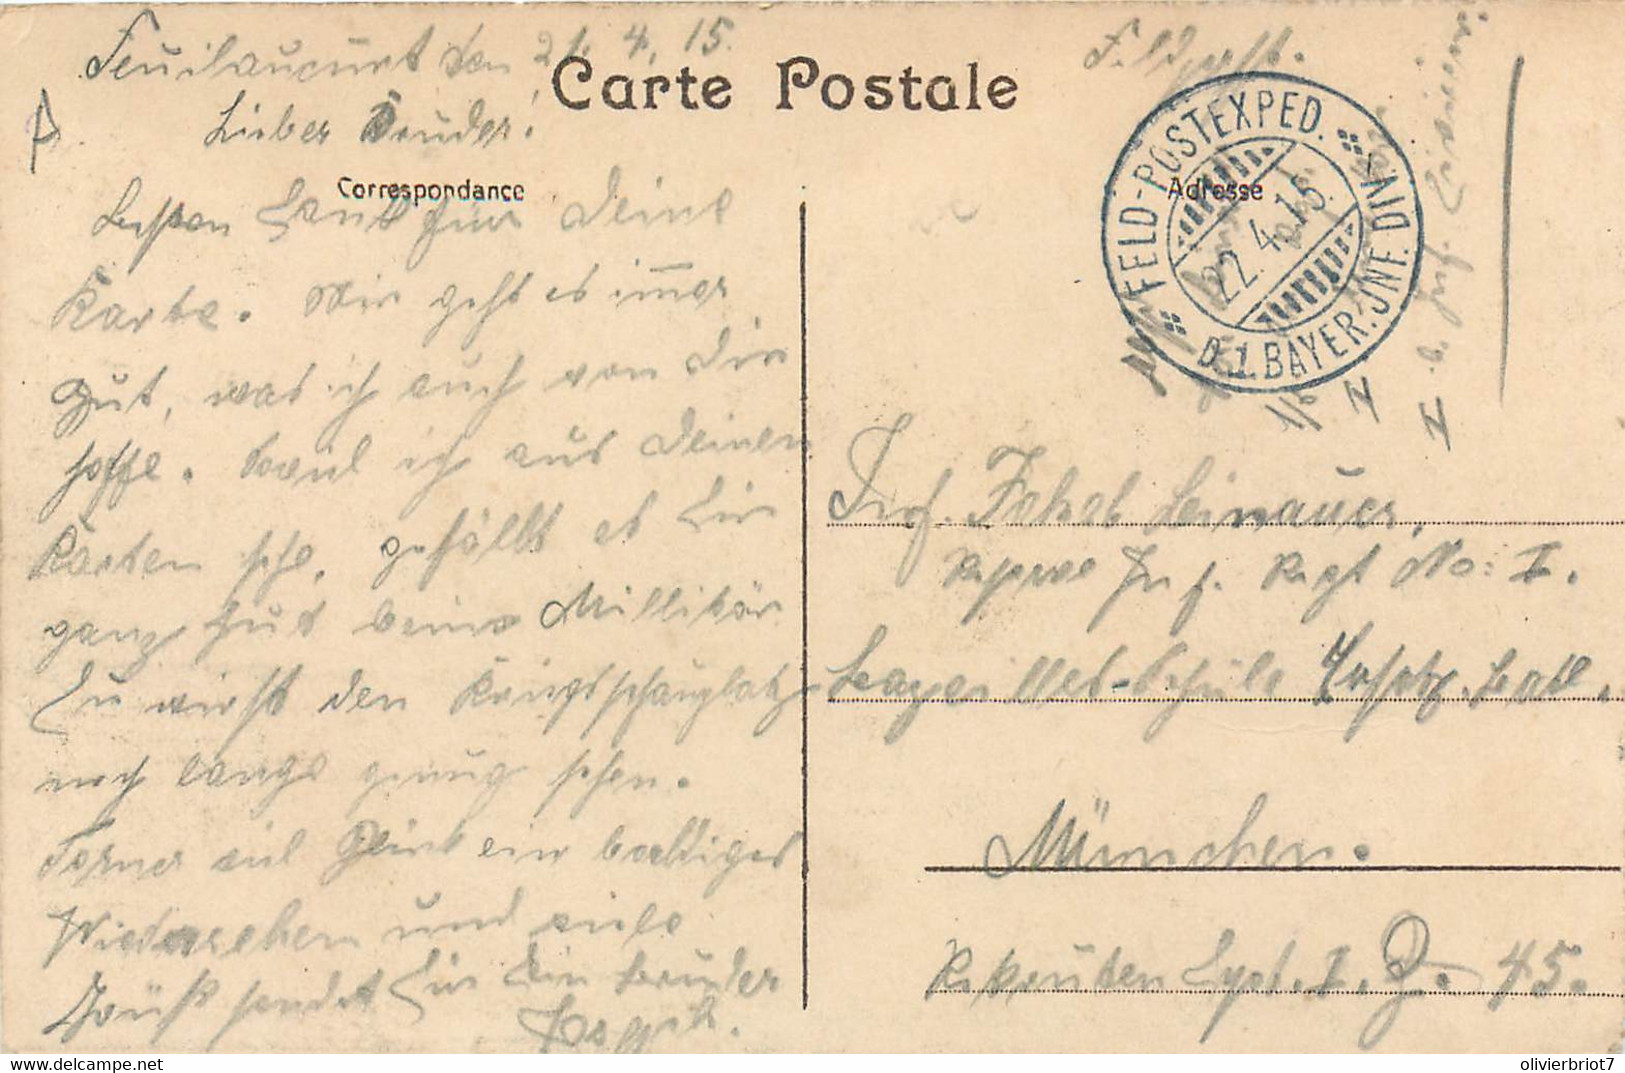 Feuilaucourt den 21. 4. 15.
Lieber Bruder!
Carte Postale
Feldpost.
Correspondance
Adresse
FELD-POSTEXPED.
D. 1. BAYER. INF. DIV.
22. 4. 15.
Besten Dank für Deine
Karte. Mir geht es immer
gut, was ich auch von Dir
hoffe. Soviel ich aus Deinen
Karten sehe, gefällt es Dir
ganz gut beim Millitär
Du wirst den Kriegsschauplatz
noch lange genug sehen.
Ferner viel Glück ein baldiges
Wiedersehen und viele
Grüße sendet Dir Dein Bruder
Joseph.
Inf. Jakob Leinauer,
Reserve Inf. Regt No: I.
Ersatz. Batl.
München.
Rekruten Dept. I. Z. 45.
I. b. Inf. Division.
olivierbriot7